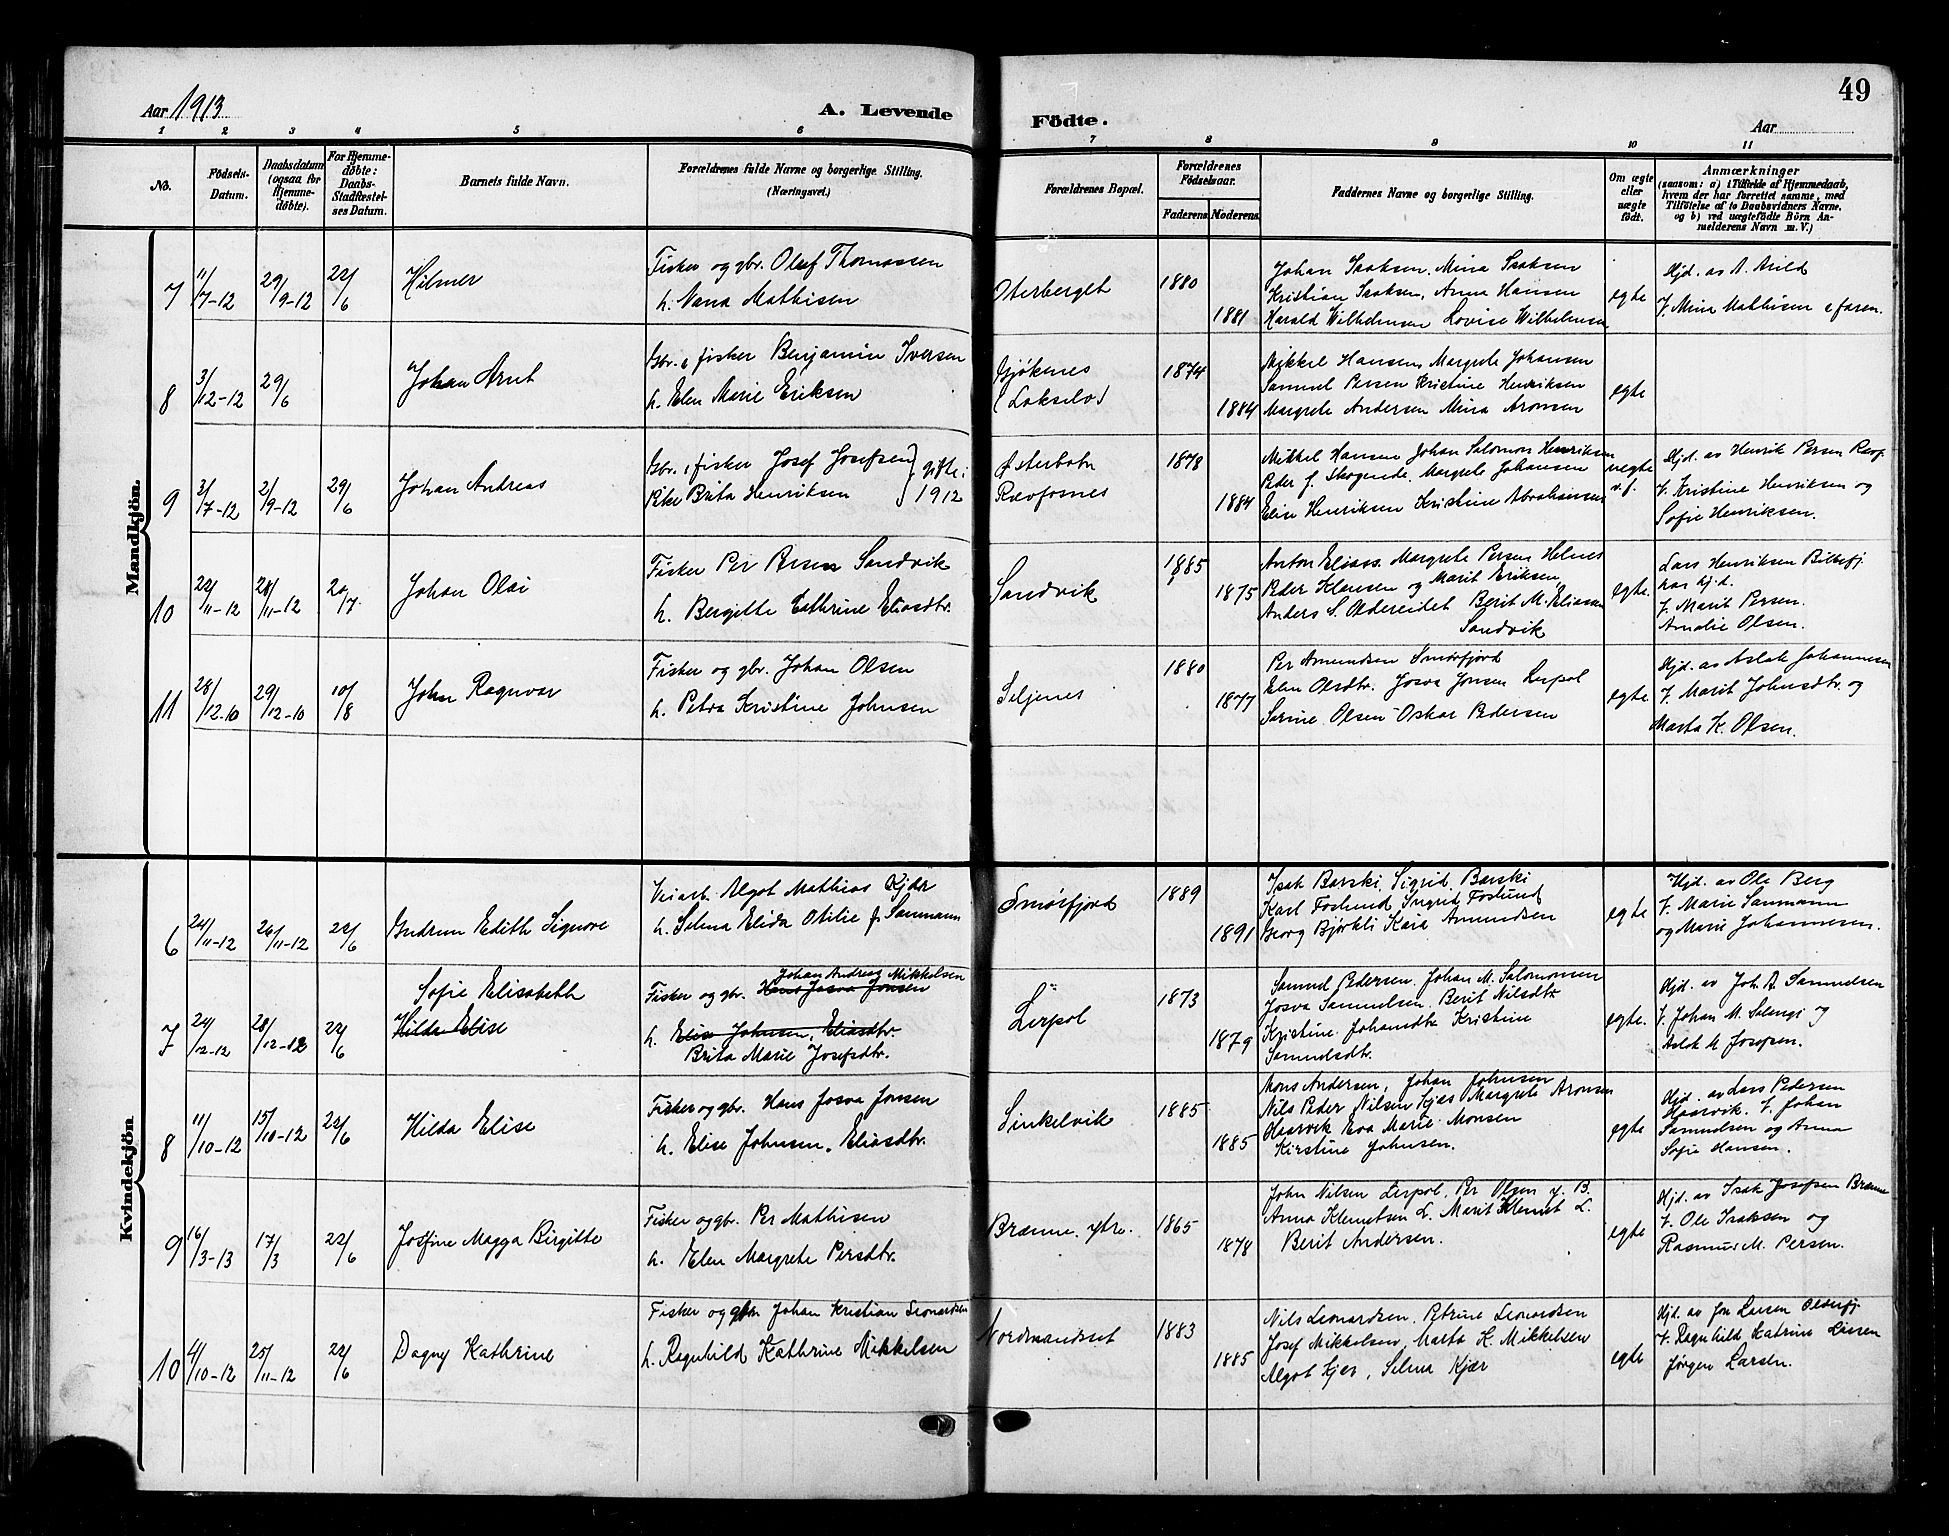 49
Aar 1913
A. Levende
Födte.
Aar
1 2 3 4 5 6 7 8 9 10 11
No.
Födsels-
Datum.
Daabsdatum
(ogsaa for
Hjemme-
döbte).
For Hjemme-
döbte:
Daabs-
Stadfæstel-
ses Datum.
Barnets fulde Navn.
Forældrenes fulde Navne og borgerlige Stilling.
(Næringsvei.)
Forældrenes Bopæl.
Forældrenes
Födselsaar.
Faderens
Moderens
Faddernes Navne og borgerlige Stilling.
Om ægte
eller
uægte
födt.
Anmærkninger
(saasom: a) i Tilfælde af Hjemmedaab,
hvem der har forrettet samme, med
Tilföielse af to Daabsvidners Navne,
og b) ved uægtefödte Börn An-
melderens Navn m. V.)
Mandkjön.
7
11/7-12
29/9-12
22/6
Hilmer
Fisker og gbr. Oluf Thomassen
h. Nana Mathisen
Oterberget
1880
1881
Johan Isaksen, Mina Isaksen
Kristian Isaksen, Anna Hansen
Harald Wilhelmsen Lovise Wilhelmsen
egte
Hjd. av A. Arild
V. Mina Mathisen & faren.
8
3/12-12
29/6
Johan Arnt
Gbr. & fisker Benjamin Iversen
h. Elen Marie Eriksen
Gjøkenes
(Lakselv)
1874
1884
Mikkel Hansen, Margrete Johansen
Samuel Persen Kristine Henriksen
Margrete Andersen Mina Aronsen
egte
9
3/7-12
2/9-12
29/6
Johan Andreas
Gbr. & fisker Josef Josefsen
Pike Brita Henriksen
} gifte i
1912
Østerbotn
Ravfosnes
1878
1884
Mikkel Hansen Johan Salomon Henriksen
Peder f. Skogende. Margrete Johansen
Elise Henriksen Kristine Abrahamsen
uegte
Hjd. av Henrik Persen
V. Kristine Henriksen og
Sofie Henriksen.
10
22/11-12
24/11-12
20/7.
Johan Olai
Fisker Per Persen Sandvik
h. Bergitte Cathrine Eliasdtr.
Sandvik
1885
1875
Anton Eliass. Margrete Persen Helnes
Peder Klausen og Marit Eriksen
Anders S. Oldereidet Berit M. Eliassen
Sandvik
egte.
Lars Henriksen Billefj.
har hj.d.
V. Marit Persen.
Amalie Olsen.
11
28/12-10
29/12-10
10/8
John Ragnvar
Fisker og gbr. Johan Olsen
h. Petra Kristine Johnsen
Seljenes
1880
1877
Per Amundsen Smørfjord
Elen Olsdtr. Josva Jonsen Lerpol
Sarine Olsen - Oskar Pedersen
egte
Hjd. av Aslak Johannesen
V. Marit Johnsdtr. og
Marta K. Olsen.
Kvindekjön
6
24/11-12
26/11-12
22/6
Gudrun Edith Signore
Veiarb. Algot Mathias Kjær
h. Selma Elida Otilie f. Sanmann
Smørfjord
1889
1891
Isak Barski, Sigrid Barski
Karl Foslund Ingrid Foslund
Georg Bjørkli Kaia Amundsen
egte
Hjd. av Ole Berg
V. Marie Sanmann
og Marie Johannesen.
7
24/12-12
28/12-12
22/6
Sofie Elisabeth
Hilda Elise
Johan Andreas Mikkelsen
Fisker og gbr. Hans Josva Jonsen
h. Elise Johnsen, Eliasdtr.
Brita Marie Josefsdtr.
Lerpol
1873
1879
Samuel Pedersen. Johan M. Salomonsen
Josva Samuelsen. Berit Nilsdtr
Kristine Johandtr Kristine
Samuelsdtr.
egte.
Hjd. av Joh. A. Samuelsen
V. Johan M. Selengi og
Aslak M Josefsen.
8
11/10-12
15/10-12
22/6
Hilda Elise
Fisker og gbr. Hans Josva Jonsen
h. Elise Johnsen, Eliasdtr.
Sinkelvik
1885
1885
Mons Andersen, Johan Johnsen
Nils Peder Nilsen Kjæs Margrete Aronsen
Olaarvik Eva Marie Monsen
Kirstine Johnsen.
egte
Hjd. av Lars Pedersen
V. Johan
Samuelsen og Anna
Sofie Hansen.
9
16/3-13
17/3
22/6
Josfine Magga Birgitte
Fisker og gbr. Per Mathisen
h. Elen Margrete Persdtr.
Brænne. ytre.
1865
1878
John Nilsen Lerpol, Per Olsen y. B.
Anna Klemetsen L. Marit Klemet L.
Berit Andersen.
egte
Hjd. av Isak Josefsen Brænne
V. Ole Isaksen og
Rasmus M. Persen.
10
4/10-12
25/11-12
22/6
Dagny Kathrine
Fisker og gbr. Johan Kristian Leonardsen
h. Ragnhild Kathrine Mikkelsen
Nordmandset
1883
1885
Nils Leonardsen, Petrine Leonardsen
Josef Mikkelsen, Marta K. Mikkelsen
Algot Kjær, Selma Kjær
egte
Hjd. av Jon Larsen Olderfj.
V. Ragnhild Katrine Larsen
Jørgen Larsen.